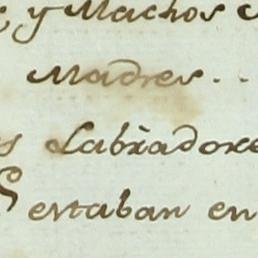 y Machos
Madres..
Labradore
estaban en